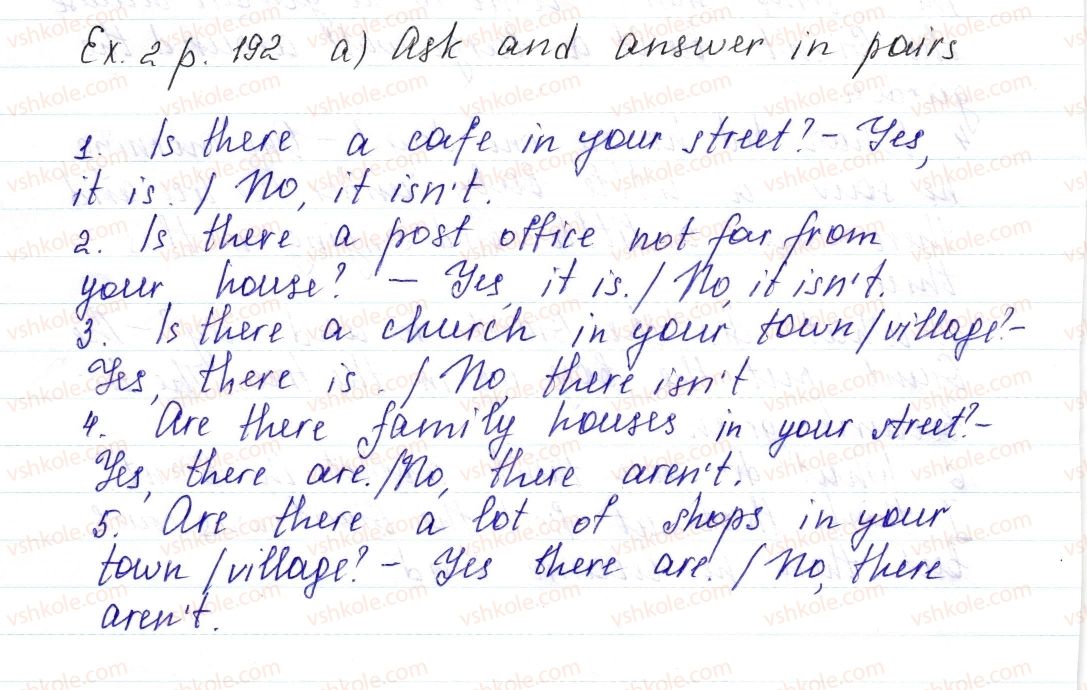 Ex. 2 p. 192 a) Ask and answer in pairs
1. Is there a cafe in your street? – Yes,
it is. / No, it isn't.
2. Is there a post office not far from
your house? – Yes, it is. / No, it isn't.
3. Is there a church in your town/village? –
Yes, there is. / No, there isn't
4. Are there family houses in your street? –
Yes, there are. / No, there aren't.
5. Are there a lot of shops in your
town/village? – Yes there are. / No, there
aren't.